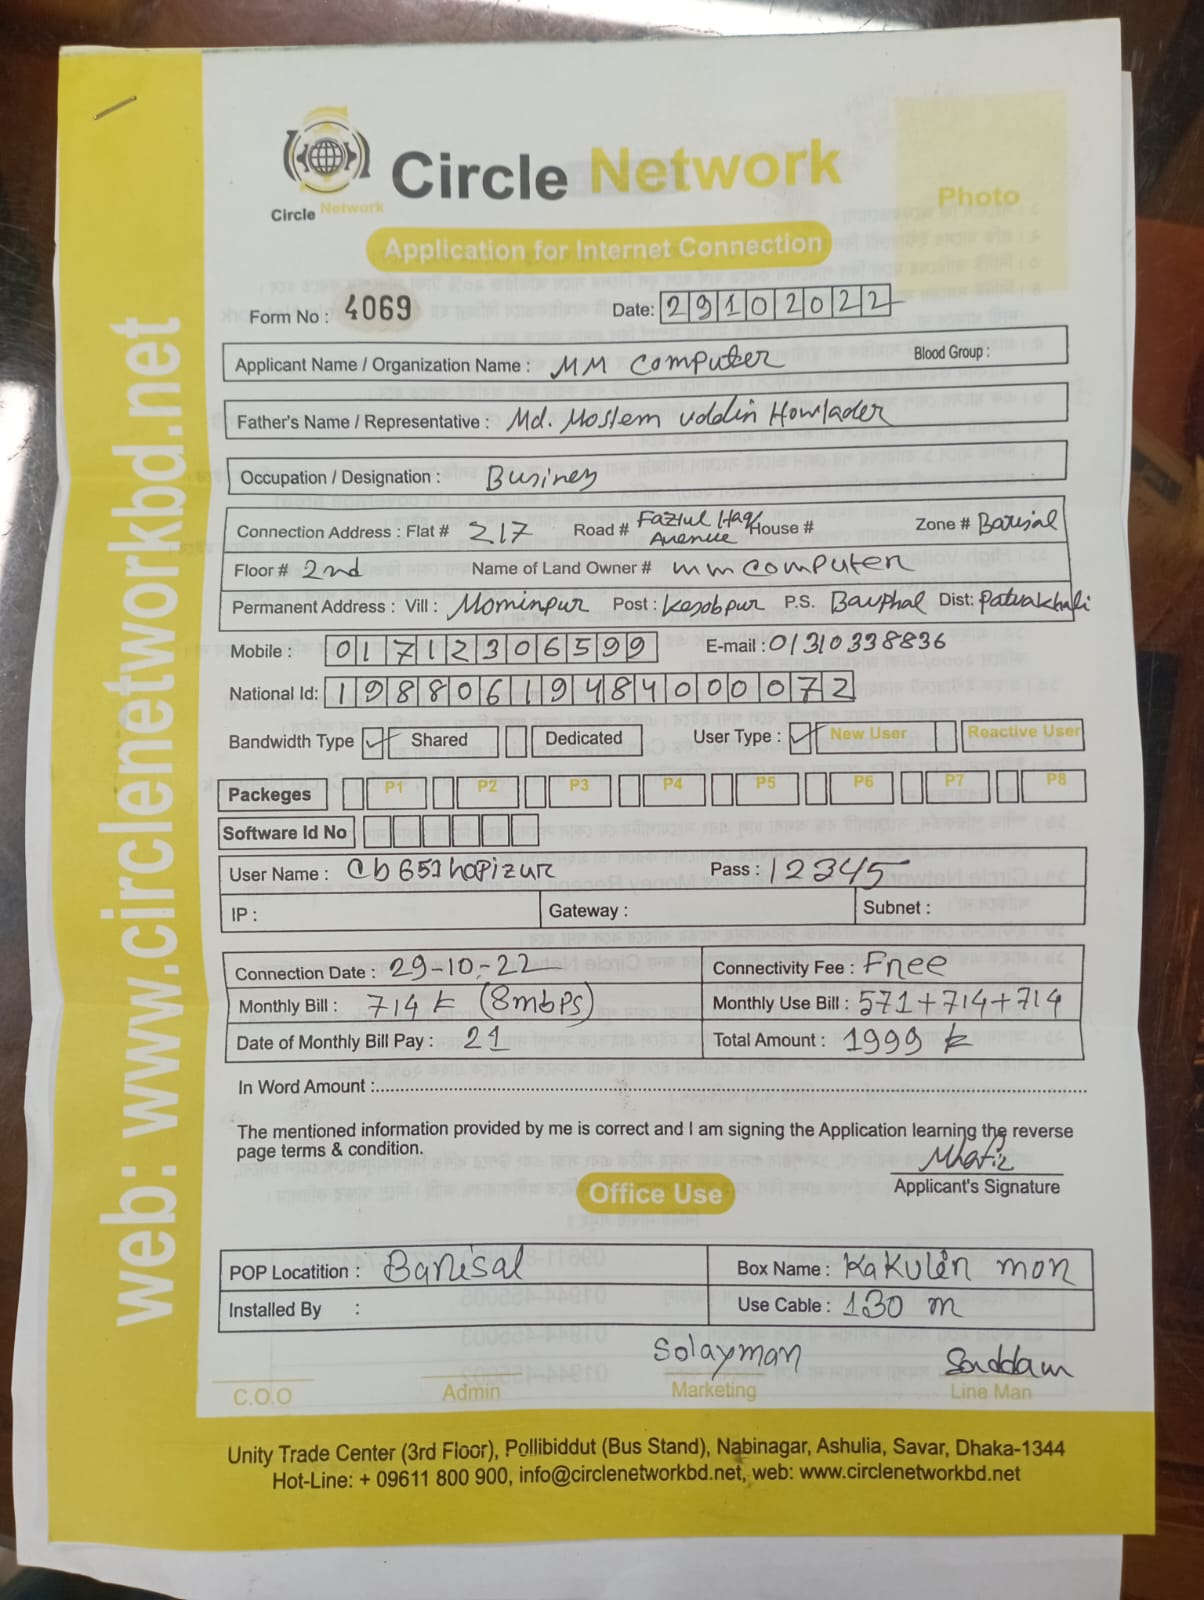 web: www.circlenetworkbd.net
Circle Network
Circle Network
Photo
Application for Internet Connection
Form No : 4069
Date: 29102022
Applicant Name / Organization Name : MM Computer
Blood Group :
Father's Name / Representative : Md. Moslem uddin Howlader
Occupation / Designation : Business
Connection Address : Flat # 217 Road # Fazlul Haq Avenue House # Zone # Barisal
Floor # 2nd Name of Land Owner # mm computer
Permanent Address : Vill : Mominpur Post : Kesobpur P.S. Bauphal Dist: Patuakhali
Mobile : 01712306599 E-mail : 01310338836
National Id: 19880619484000072
Bandwidth Type Shared Dedicated User Type : New User Reactive User
Packeges P1 P2 P3 P4 P5 P6 P7 P8
Software Id No
User Name : @b653hapizur Pass : 12345
IP : Gateway : Subnet :
Connection Date : 29-10-22 Connectivity Fee : Free
Monthly Bill : 714 (8mbps) Monthly Use Bill : 571+714+714
Date of Monthly Bill Pay : 21 Total Amount : 1999
In Word Amount :
The mentioned information provided by me is correct and I am signing the Application learning the reverse
page terms & condition.
Mhafiz
Applicant's Signature
Office Use
POP Locatition : Barisal Box Name : Kakulir mor
Installed By : Use Cable : 130 m
Solayman Saddam
C.O.O Admin Marketing Line Man
Unity Trade Center (3rd Floor), Pollibiddut (Bus Stand), Nabinagar, Ashulia, Savar, Dhaka-1344
Hot-Line: + 09611 800 900, info@circlenetworkbd.net, web: www.circlenetworkbd.net